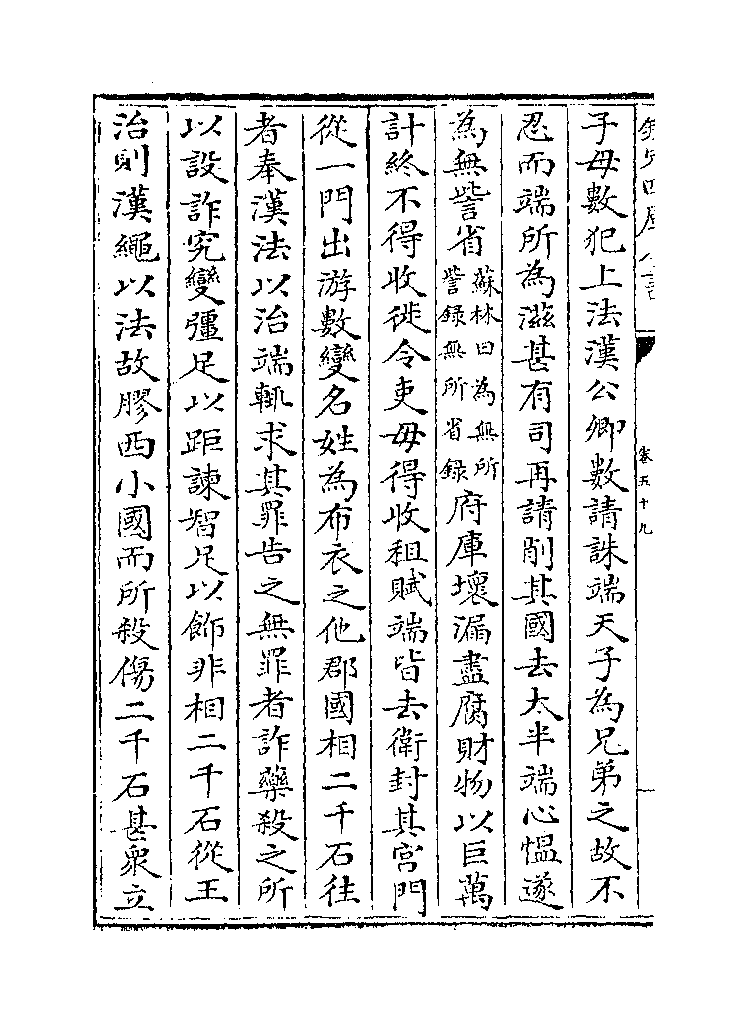 欽定四庫全書
卷五十九
子母數犯上法漢公卿數請誅端天子為兄弟之故不
忍而端所為滋甚有司再請削其國去太半端心慍遂
為無訾省蘇林曰為無所訾錄無所省錄府庫壞漏盡腐財物以巨萬
計終不得收徙令吏毋得收租賦端皆去衛封其宮門
從一門出游數變名姓為布衣之他郡國相二千石往
者奉漢法以治端輒求其罪告之無罪者詐藥殺之所
以設詐究變彊足以距諫智足以飾非相二千石從王
治則漢繩以法故膠西小國而所殺傷二千石甚衆立